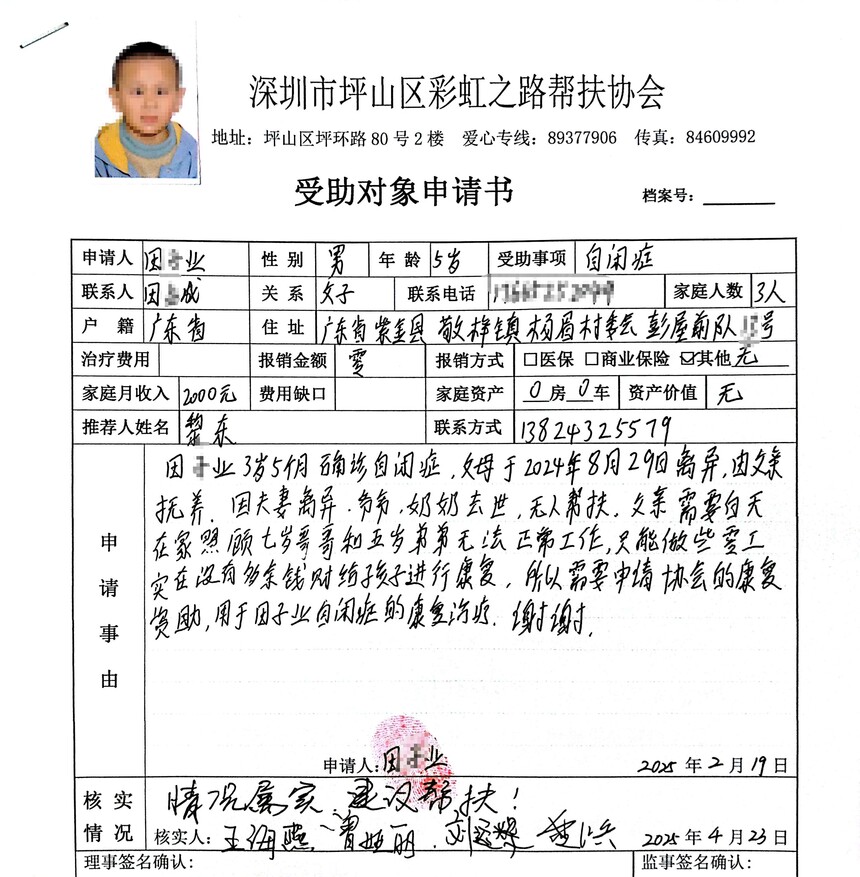 深圳市坪山区彩虹之路帮扶协会
地址：坪山区坪环路80号2楼 爱心专线：89377906 传真：84609992
受助对象申请书
档案号：
申请人 田 业 性别 男 年龄 5岁 受助事项 自闭症
联系人 田 成 关系 父子 联系电话 家庭人数 3人
户籍 广东省 住址 广东省紫金县 敬梓镇杨眉村委会 彭屋前队 号
治疗费用 报销金额 零 报销方式 □医保 □商业保险 ☑其他 无
家庭月收入 2000元 费用缺口 家庭资产 0房0车 资产价值 无
推荐人姓名 黎东 联系方式 13824325579
申请事由
田 业3岁5个月确诊自闭症，父母于2024年8月29日离异，由父亲
抚养。因夫妻离异，爷爷，奶奶去世，无人帮扶，父亲需要白天
在家照顾七岁哥哥和五岁弟弟无法正常工作，只能做些零工
实在没有多余钱财给孩子进行康复，所以需要申请协会的康复
资助，用于田子业自闭症的康复治疗。谢谢，
申请人：田 业 2025年2月19日
核实情况
情况属实，建议帮扶！
核实人：王海燕 曾娅丽 2025年4月23日
理事签名确认： 监事签名确认：